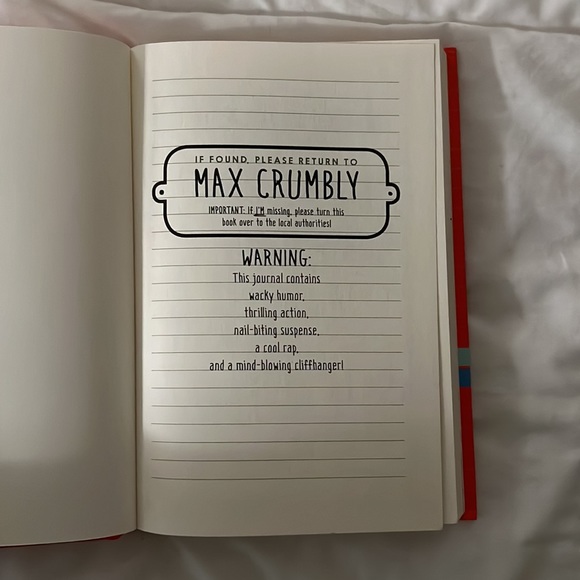 IF FOUND, PLEASE RETURN TO
MAX CRUMBLY
IMPORTANT: IF I'M missing, please turn this
book over to the local authorities!
WARNING:
This journal contains
wacky humor,
thrilling action,
nail-biting suspense,
a cool rap,
and a mind-blowing cliffhanger!